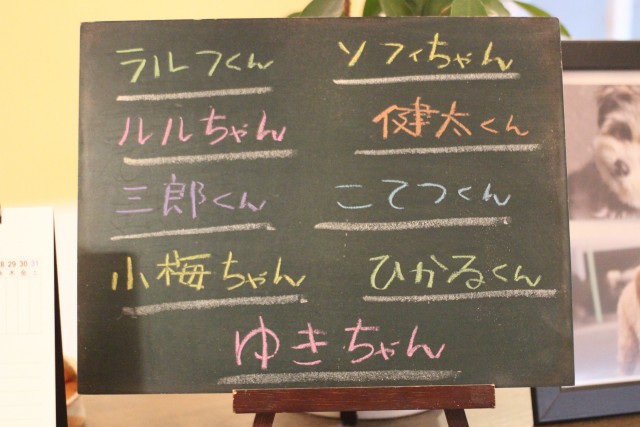 ラルフくん ソフィちゃん
ルルちゃん 健太くん
三郎くん こてつくん
小梅ちゃん ひかるくん
ゆきちゃん
29 30 31